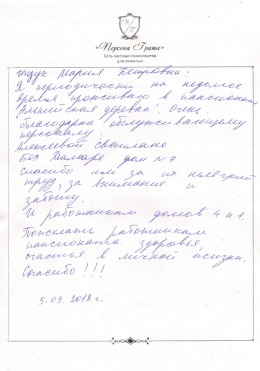 «Персона Грата»
Сеть частных пансионатов
для пожилых
Мария Петровна.
Я периодически на недолгое
время проживаю в пансионате
деревка. Очень
благодарна обслуживающему
персоналу.
Алексеевой Светлане
дом № 7
Спасибо им за их нелегкий
труд, за внимание и
заботу.
И работникам домов 4 и 1.
Пожелать работникам
пансионата здоровья,
счастья в личной жизни.
Спасибо!!!
5.09.2018 г.